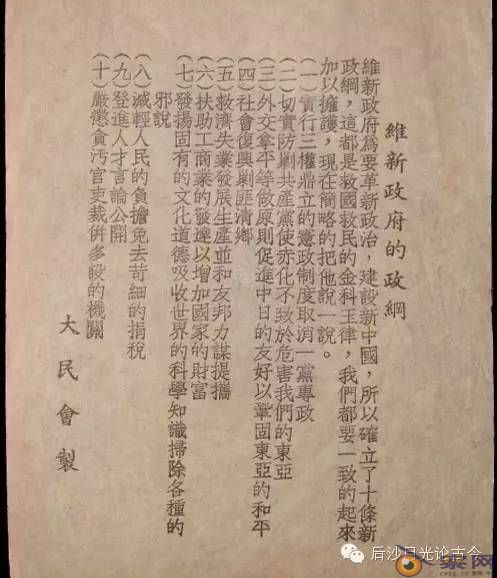 維新政府的政綱
維新政府為要革新政治，建設新中國，所以確立了十條新
政綱，這都是救國救民的金科玉律，我們都要一致的起來
加以擁護，現在簡略的把他說一說。
(一)實行三權鼎立的憲政制度取消一黨專政
(二)切實防剿共產黨使赤化不致於危害我們的東亞
(三)外交拿平等做原則促進中日的友好以鞏固東亞的和平
(四)社會復興剿匪清鄉
(五)救濟失業發展生產並和友邦力謀提攜
(六)扶助工商業的發達以增加國家的財富
(七)發揚固有的文化道德吸收世界的科學知識掃除各種的
邪說
(八)減輕人民的負擔免去苛細的捐稅
(九)登進人才言論公開
(十)嚴懲貪汚官吏裁併多設的機關
大民會製
后沙月光论古今
cwzg.cn